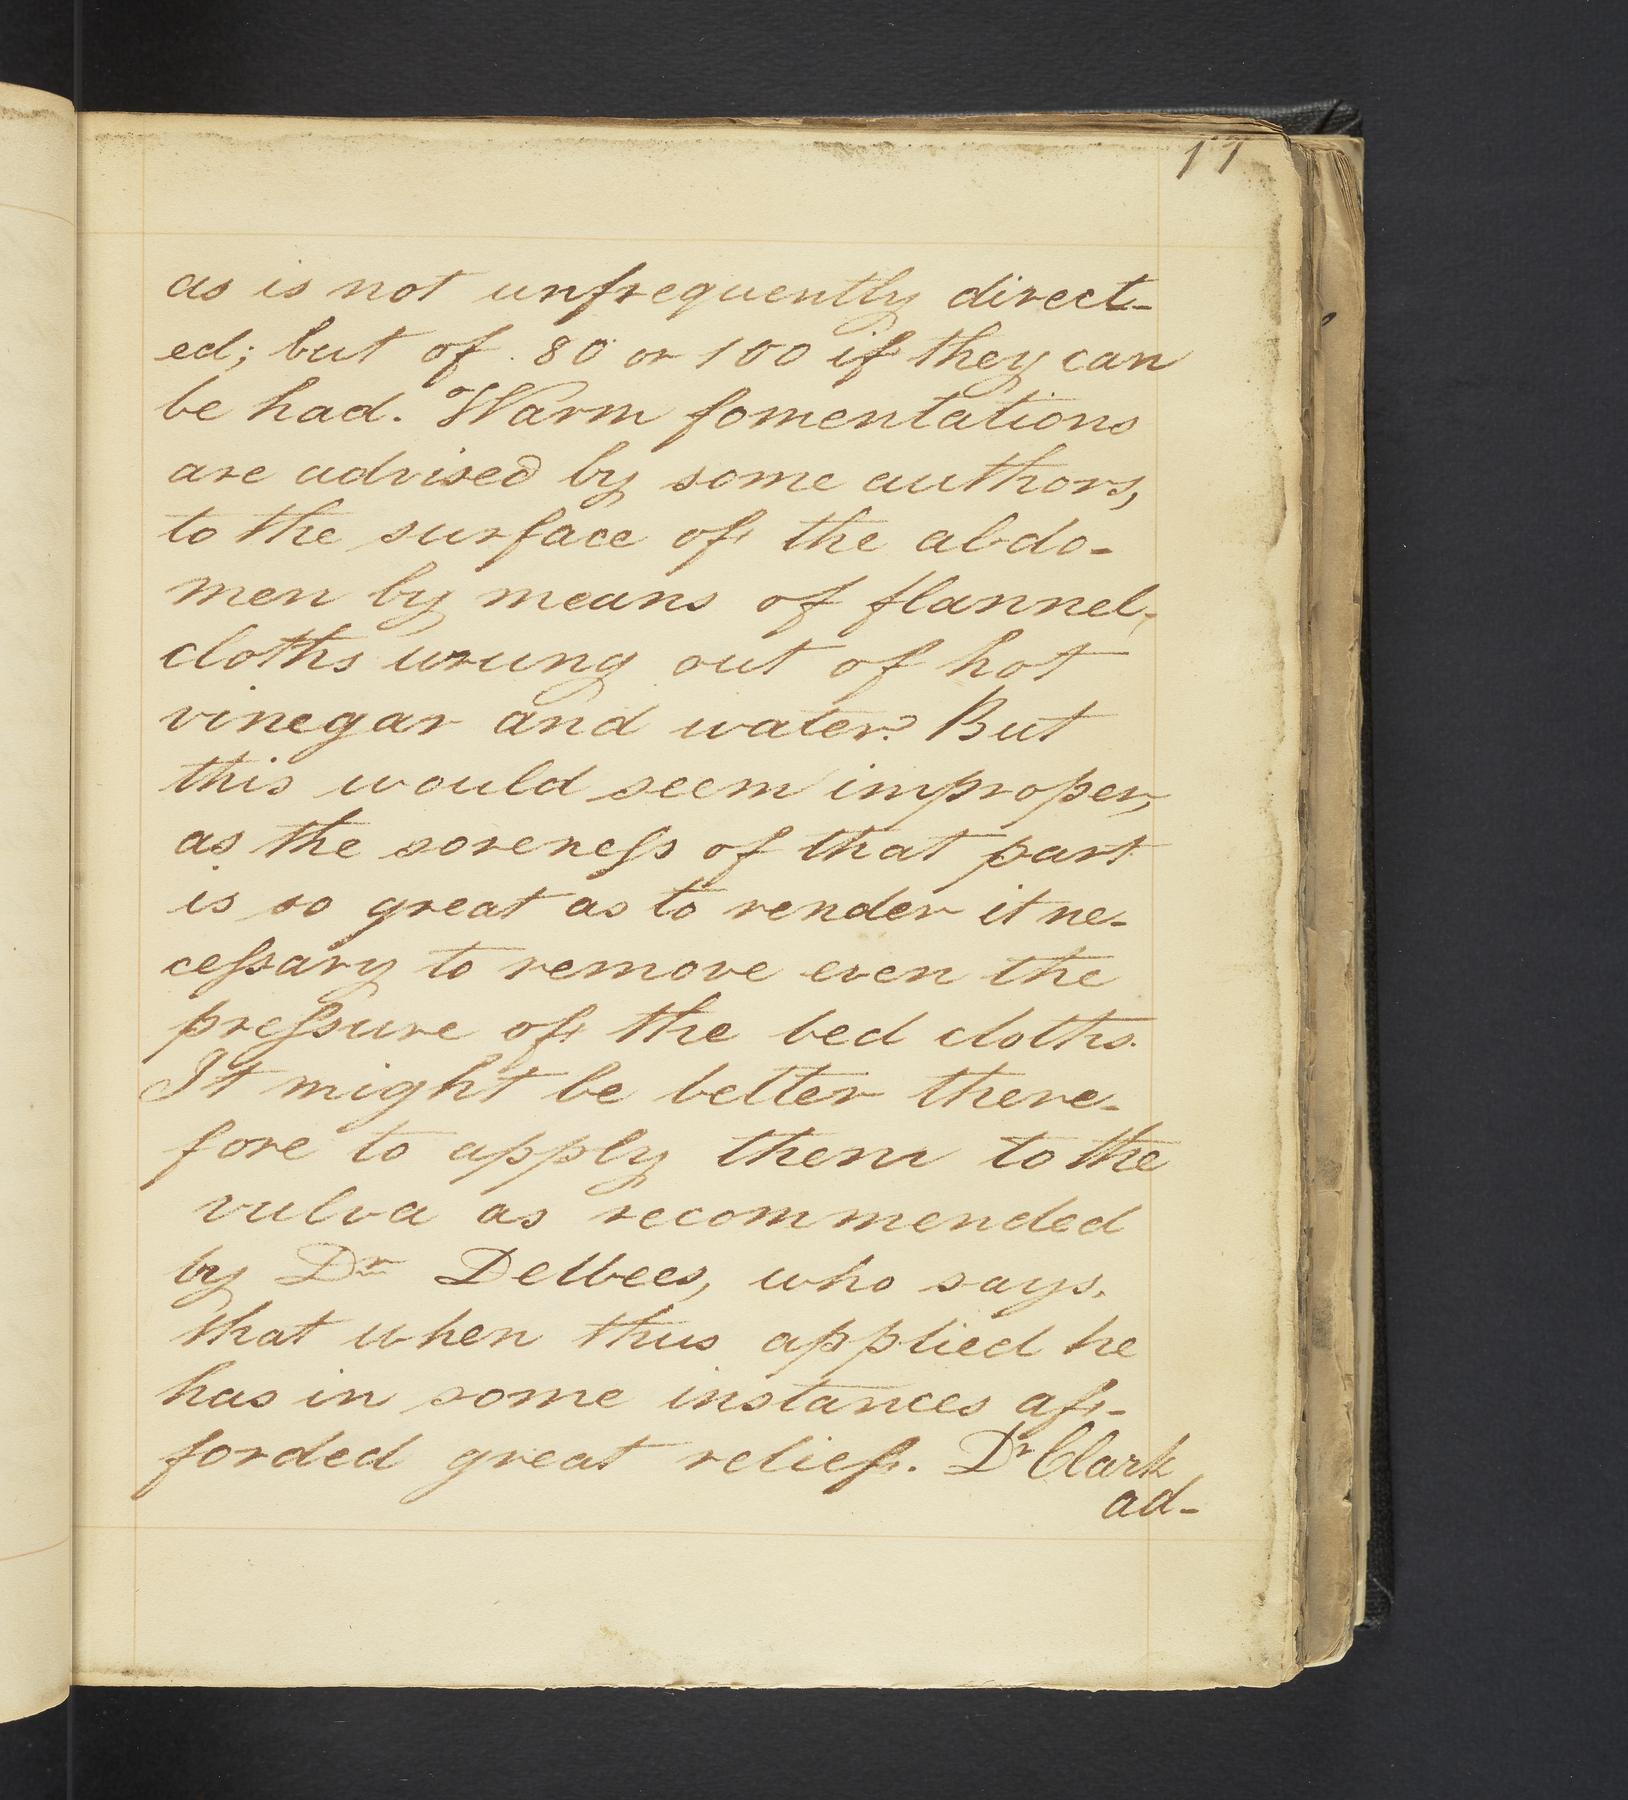 11
as is not unfrequently direct-
ed; but of 80 or 100 if they can
be had. Warm fomentations
are advised by some authors,
to the surface of the abdo-
men by means of flannel,
cloths wrung out of hot
vinegar and water. But
this would seem improper,
as the soreneſs of that part
is so great as to render it ne-
ceſsary to remove even the
preſsure of the bed cloths.
It might be better there-
fore to apply them to the
vulva as recommended
by Dr Dewees, who says,
that when thus applied he
has in some instances af-
forded great relief. Dr Clark
ad-